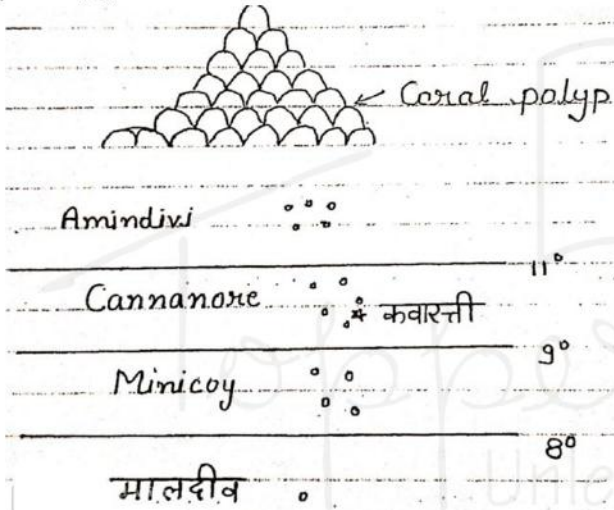 Coral polyp
Amindivi
11°
Cannanore
कवारत्ती
9°
Minicoy
8°
मालदीव
Topp
Unle